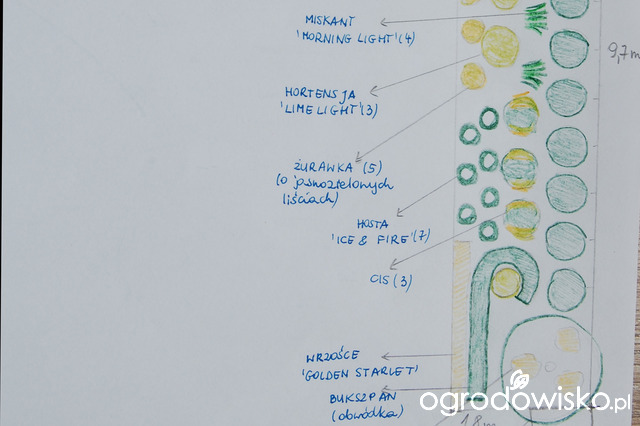 MISKANT
'MORNING LIGHT' (4)
9,7m
HORTENSJA
'LIMELIGHT' (3)
ŻURAWKA (5)
(o jasnozielonych
liściach)
HOSTA
'ICE & FIRE' (7)
CIS (3)
WRZOŚCE
'GOLDEN STARLET'
BUKSZPAN
(obwódka)
ogrodowisko.pl
1,8m